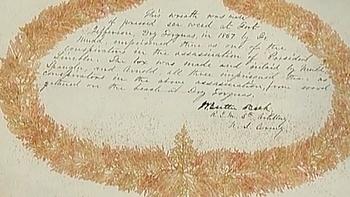 This wreath was made
of pressed sea weed at Fort
Jefferson, Dry Tortugas, in 1867 by Dr
Mudd, imprisoned there as one of the
conspirators in the assassination of President
Lincoln. The box was made and inlaid by
Spangler and Arnold all three imprisoned there as
conspirators in the above assassination, from wood
gathered on the beach at Dry Tortugas.
R.Q.M. 5th Artillery
U.S. Army